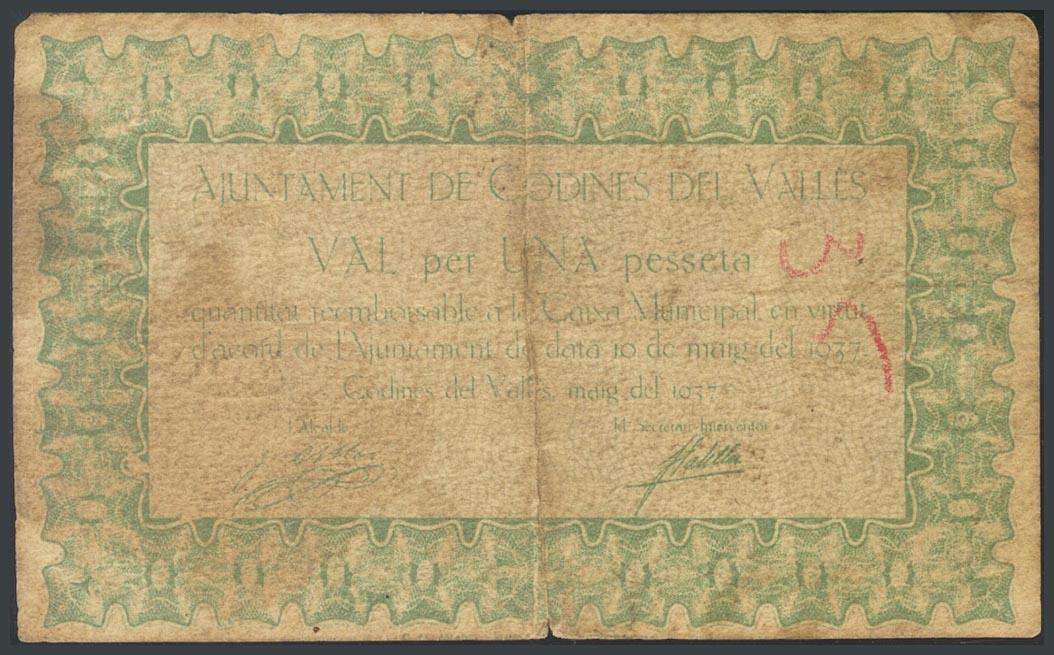 AJUNTAMENT DE CODINES DEL VALLÈS
VAL per UNA pesseta
quantitat reemborsable a la Caixa Municipal, en virtut
d'acord de l'Ajuntament de data 10 de maig del 1937.
Codines del Vallès, maig del 1937
L'Alcalde
El Secretari-Interventor
37